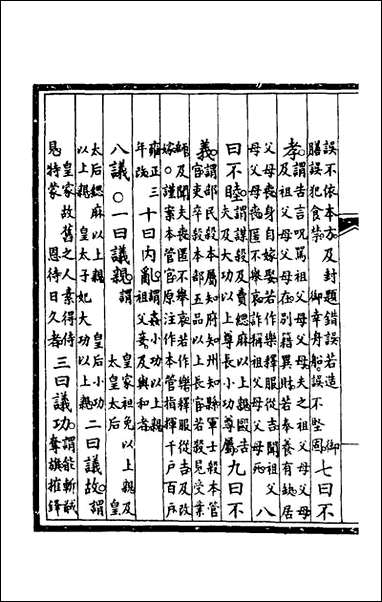 誤不依本方及封題錯誤若造 御
膳誤犯食禁 御幸舟船誤不堅固 七曰不
孝謂告言呪罵祖父母父母夫之祖父母父母
及祖父母父母在別籍異財若奉養有缺居
父母喪身自嫁娶若作樂釋服從吉聞祖父
母父母喪匿不舉哀詐稱祖父母父母死 八
曰不睦謂謀殺及賣緦麻以上親毆告
夫及大功以上尊長小功尊屬 九曰不
義謂部民殺本屬知府知州知縣軍士殺本管
官吏卒殺本部五品以上長官若殺見受業
師及聞夫喪匿不舉哀若作樂釋服從吉及改
嫁○謹案本管官原注作本管指揮千戶百戶
雍正三
年改 十曰內亂謂姦小功以上親
祖父妾及與和者
八議○一曰議親謂 皇家袒免以上親及
太皇太后 皇
太后緦麻以上親 皇后小功
以上親 皇太子妃大功以上親 二曰議故謂
皇家故舊之人素得侍
見特蒙 恩待日久者 三曰議功謂能斬將
奪旗摧鋒